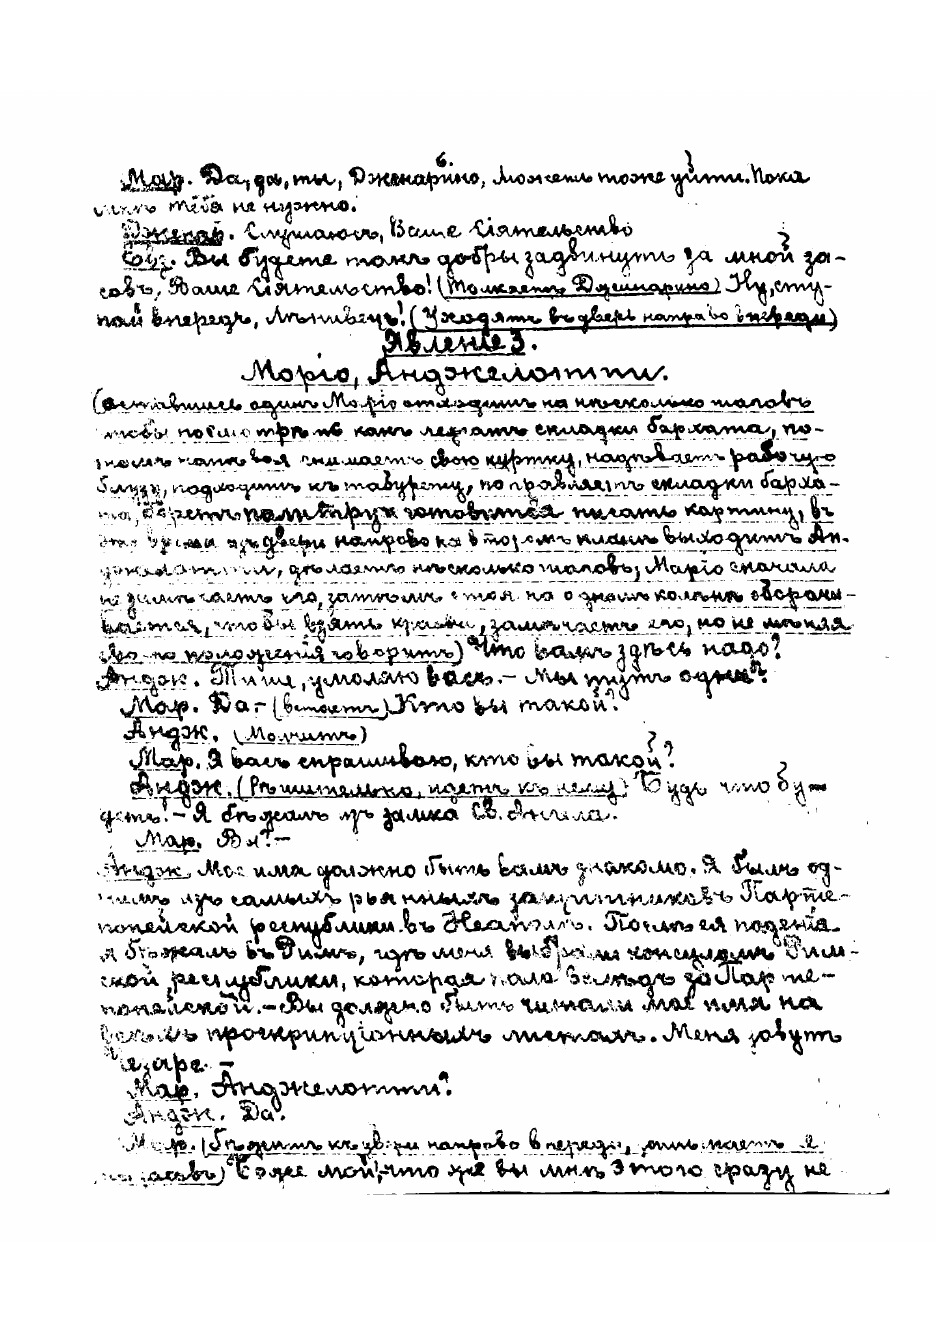 6.
Мар. Да, да, ты, Дженарино, можешь тоже уйти. Пока
мнѣ тебя не нужно.
Дженар. Слушаюсь, Ваше Сіятельство
Евз. Вы будете такъ добры задвинуть за мной за-
совъ, Ваше Сіятельство! (Толкаетъ Дженарино) Ну, сту-
пай впередъ, лѣнивецъ! (Уходятъ въ дверь направо впереди)
Явленіе 3.
Маріо, Анджелотти.
(оставшись одинъ Маріо отходитъ на нѣсколько шаговъ
чтобы посмотрѣть какъ лежатъ складки бархата, по-
томъ напѣвая снимаетъ свою куртку, надѣваетъ рабочую
блузу, подходитъ къ табурету, поправляетъ складки барха-
та, беретъ палитру и готовится писать картину, въ
это время изъ двери направо на второмъ планѣ выходитъ Ан-
джелотти, дѣлаетъ нѣсколько шаговъ; Маріо сначала
не замѣчаетъ его, затѣмъ стоя на одномъ колѣнѣ оборачи-
вается, чтобы взять краски, замѣчаетъ его, но не мѣняя
положенія говоритъ) Что вамъ здѣсь надо?
Андж. Тише, умоляю васъ. – Мы тутъ одни?
Мар. Да – (встаетъ) Кто вы такой?
Андж. (Молчитъ)
Мар. Я васъ спрашиваю, кто вы такой?
Андж. (Рѣшительно, идетъ къ нему) Будь что бу-
детъ! – Я бѣжалъ изъ замка Св. Ангела.
Мар. Вы? –
Андж. Мое имя должно быть вамъ знакомо. Я былъ од-
нимъ изъ самыхъ рьяныхъ защитниковъ Парте-
нопейской республики въ Неаполѣ. Послѣ ея паденія
я бѣжалъ въ Римъ, гдѣ меня выбрали консуломъ Рим-
ской республики, которая пала вслѣдъ за Парте-
нопейской. – Вы должно быть читали мое имя на
всѣхъ проскрипціонныхъ листахъ. Меня зовутъ
Чезаре –
Мар. Анджелотти?
Андж. Да.
Мар. (бѣжитъ къ двери направо впереди,
засовъ) Боже мой, что же вы мнѣ этого сразу не